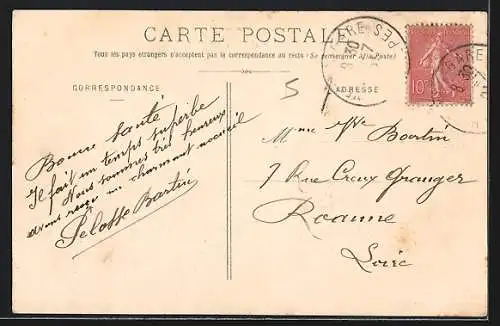 CARTE POSTALE
Tous les pays étrangers n'acceptent pas la correspondance au recto (Se renseigner à la Poste)
CORRESPONDANCE
ADRESSE
Bonne santé
Il fait un temps superbe
Nous sommes très heureux
avons reçu un charmant accueil
Pélosse Bartin
5
GARE
8 30
10
Mme Vve Bartin
7 Rue Creux Granger
Roanne
Loire